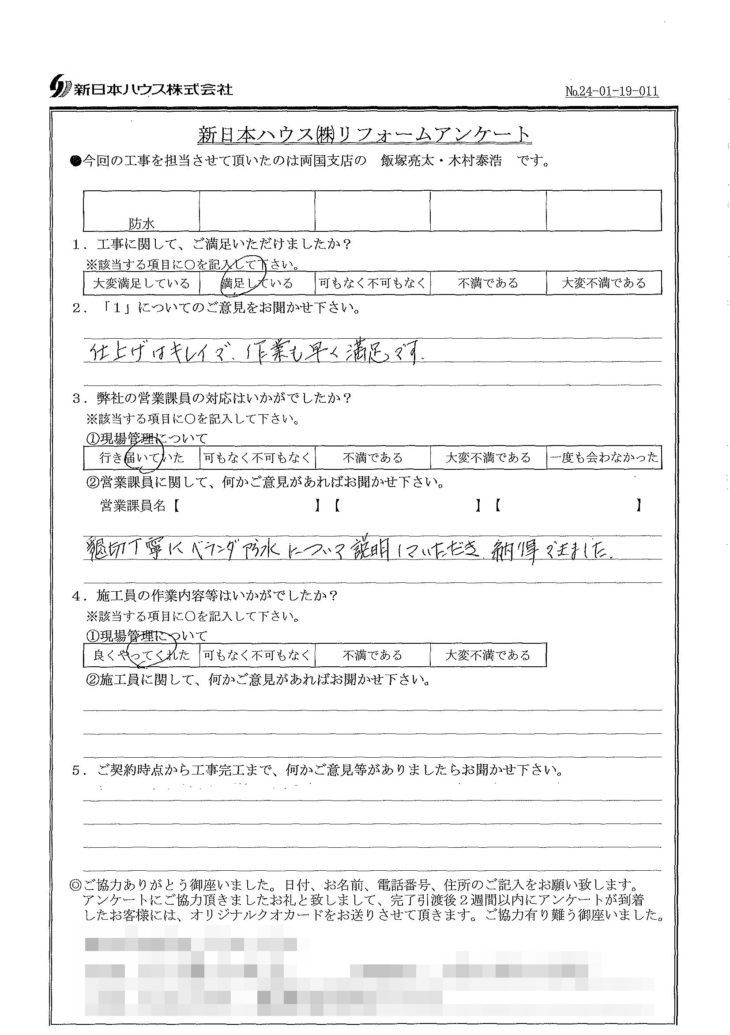 新日本ハウス株式会社
№24-01-19-011
新日本ハウス㈱リフォームアンケート
●今回の工事を担当させて頂いたのは両国支店の 飯塚亮太・木村泰浩 です。
防水
1．工事に関して、ご満足いただけましたか？
※該当する項目に○を記入して下さい。
大変満足している 満足している 可もなく不可もなく 不満である 大変不満である
2．「1」についてのご意見をお聞かせ下さい。
仕上げはキレイで、作業も早く満足です。
3．弊社の営業課員の対応はいかがでしたか？
※該当する項目に○を記入して下さい。
①現場管理について
行き届いていた 可もなく不可もなく 不満である 大変不満である 一度も会わなかった
②営業課員に関して、何かご意見があればお聞かせ下さい。
営業課員名【 】【 】【 】
懇切丁寧にベランダ防水について説明していただき、納得できました。
4．施工員の作業内容等はいかがでしたか？
※該当する項目に○を記入して下さい。
①現場管理について
良くやってくれた 可もなく不可もなく 不満である 大変不満である
②施工員に関して、何かご意見があればお聞かせ下さい。
5．ご契約時点から工事完工まで、何かご意見等がありましたらお聞かせ下さい。
◎ご協力ありがとう御座いました。日付、お名前、電話番号、住所のご記入をお願い致します。
アンケートにご協力頂きましたお礼と致しまして、完了引渡後２週間以内にアンケートが到着
したお客様には、オリジナルクオカードをお送りさせて頂きます。ご協力有り難う御座いました。